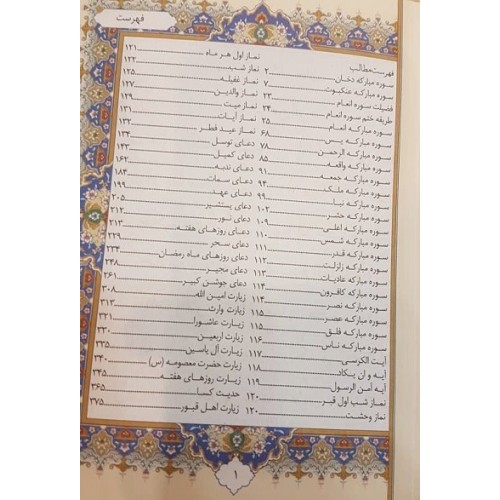 فهرست
فهرست مطالب
سوره مبارکه دخان ۲
سوره مبارکه عنکبوت ۷
فضیلت سوره انعام ۲۳
طریقه ختم سوره انعام ۲۴
سوره مبارکه انعام ۲۵
سوره مبارکه یس ۶۸
سوره مبارکه الرحمن ۷۸
سوره مبارکه واقعه ۸۵
سوره مبارکه جمعه ۹۱
سوره مبارکه ملک ۹۴
سوره مبارکه نبا ۹۹
سوره مبارکه حشر ۱۰۲
سوره مبارکه اعلی ۱۰۹
سوره مبارکه شمس ۱۱۰
سوره مبارکه قدر ۱۱۱
سوره مبارکه زلزلت ۱۱۲
سوره مبارکه عادیات ۱۱۳
سوره مبارکه کافرون ۱۱۴
سوره مبارکه نصر ۱۱۴
سوره مبارکه عصر ۱۱۵
سوره مبارکه فلق ۱۱۵
سوره مبارکه ناس ۱۱۶
آیت الکرسی ۱۱۷
آیه و ان یکاد ۱۱۸
آیه آمن الرسول ۱۱۹
نماز شب اول قبر ۱۲۰
نماز وحشت ۱۲۰
نماز اول هر ماه ۱۲۱
نماز شب ۱۲۲
نماز غفیله ۱۲۵
نماز والدین ۱۲۷
نماز میت ۱۲۹
نماز آیات ۱۳۱
نماز عید فطر ۱۳۲
دعای توسل ۱۳۴
دعای کمیل ۱۴۳
دعای ندبه ۱۶۲
دعای سمات ۱۸۴
دعای عهد ۱۹۹
دعای یستشیر ۲۰۵
دعای نور ۲۱۲
دعای روزهای هفته ۲۱۳
دعای سحر ۲۲۹
دعای روزهای ماه رمضان ۲۳۴
دعای مجیر ۲۴۸
دعای جوشن کبیر ۲۶۱
زیارت امین الله ۳۰۸
زیارت وارث ۳۱۳
زیارت عاشورا ۳۲۱
زیارت اربعین ۳۳۱
زیارت آل یاسین ۳۳۵
زیارت حضرت معصومه (س) ۳۴۰
زیارت روزهای هفته ۳۴۵
حدیث کسا ۳۶۵
زیارت اهل قبور ۳۷۵
۱